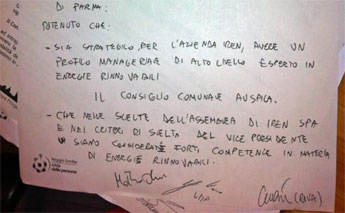 DI PARMA:
RITENUTO CHE:
- SIA STRATEGICO, PER L'AZIENDA IREN, AVERE UN
PROFILO MANAGERIALE DI ALTO LIVELLO ESPERTO IN
ENERGIE RINNOVABILI
IL CONSIGLIO COMUNALE AUSPICA
- CHE NELLE SCELTE DELL'ASSEMBLEA DI IREN SPA
E NEI CRITERI DI SCELTA DEL VICE PRESIDENTE
SIANO CONSIDERATE FORTI COMPETENZE IN MATERIA
DI ENERGIE RINNOVABILI.
Reggio Emilia
città
delle persone